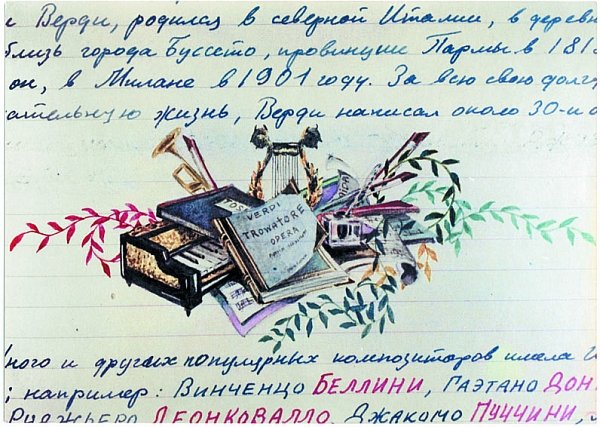 с Верди, родился в северной Италии, в деревн
близь города Буссето, провинции Пармы в 181
он, в Милане в 1901 году. За всю свою долг
ательную жизнь, Верди написал около 30-и о
VERDI
TROWATORE
OPERA
ного и других популярных композиторов имела И
; например: Винченцо БЕЛЛИНИ, Гаэтано ДОН
Руджьеро ЛЕОНКОВАЛЛО, Джакомо ПУЧЧИНИ,